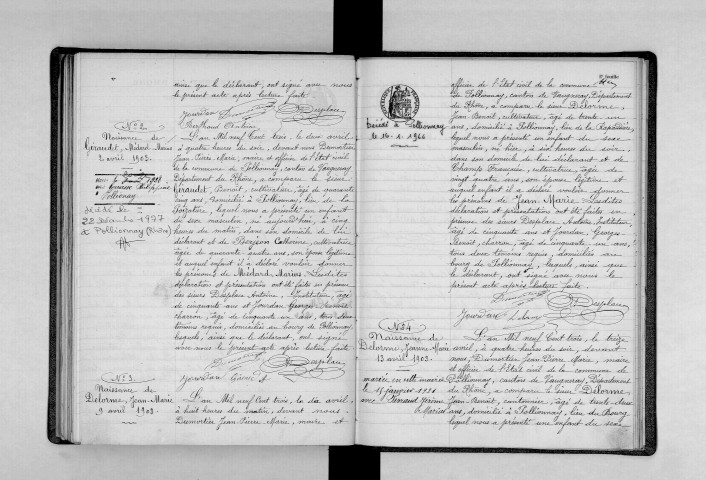 ainsi que le déclarant, ont signé avec nous
le présent acte après lecture faite.
Jourdan Desplace
Berthaud
N° 2
Naissance de
Giraudet, Médard Marius
2 avril 1903.
Pollionnay
décédé le
22 Décembre 1977
à Pollionnay (Rhône)
L'an Mil neuf Cent trois, le deux avril
à quatre heures du soir, devant nous Dumortier
Jean Pierre Marie, maire et officier de l'état civil
de la commune de Pollionnay, canton de Vaugneray
Département du Rhône, a comparu le sieur
Giraudet, Benoît, cultivateur, âgé de quarante
cinq ans, domicilié à Pollionnay, lieu de la
lequel nous a présenté un enfant
du sexe masculin, né aujourd'hui, à cinq
heures du matin, dans son domicile de lui
déclarant et de Berjon Catherine, cultivatrice
âgée de quarante quatre ans, son épouse légitime
et auquel enfant il a déclaré vouloir donner
les prénoms de Médard, Marius. Lesdites
déclaration et présentation ont été faites en présence
des sieurs Desplace Antoine, Instituteur, âgé
de cinquante ans et Jourdan Georges Benoît
charron, âgé de cinquante un ans, tous deux
témoins requis, domiciliés au bourg de Pollionnay,
lesquels, ainsi que le déclarant, ont signé
avec nous le présent acte après lecture faite
Desplace
Jourdan
N° 3
Naissance de
Delorme, Jean Marie
9 avril 1903.
L'an Mil neuf Cent trois, le dix avril,
à huit heures du matin, devant nous
Dumortier Jean Pierre Marie, maire et
officier de l'état civil de la commune
de Pollionnay, canton de Vaugneray, Département
du Rhône, a comparu le sieur Delorme,
Jean Benoît, cultivateur, âgé de trente un
ans, domicilié à Pollionnay, lieu de
lequel nous a présenté un enfant du sexe
masculin, né hier, à six heures du soir
dans son domicile de lui déclarant et de
cultivatrice, âgée de
vingt quatre ans, son épouse légitime et
auquel enfant il a déclaré vouloir donner
les prénoms de Jean Marie. Lesdites
déclaration et présentation ont été faites en
présence des sieurs Desplace Antoine, Instituteur,
âgé de cinquante ans et Jourdan, Georges
Benoît, charron, âgé de cinquante un ans,
tous deux témoins requis, domiciliés au
bourg de Pollionnay, lesquels, ainsi que
le déclarant, ont signé avec nous le
présent acte après lecture faite.
Desplace
Jourdan
Décédé à Pollionnay
1966
N° 4
Naissance de
Delorme, Jeanne Marie
13 avril 1903.
mariée en cette mairie
17 janvier 1931
avec
L'an Mil neuf Cent trois, le treize
avril, à quatre heures du soir, devant
nous, Dumortier Jean Pierre Marie, maire
et officier de l'état civil de la commune de
Pollionnay, canton de Vaugneray, Département
du Rhône, a comparu le sieur Delorme
Jean Benoît, cantonnier, âgé de trente deux
ans, domicilié à Pollionnay, lieu du Bourg
lequel nous a présenté une enfant du sexe